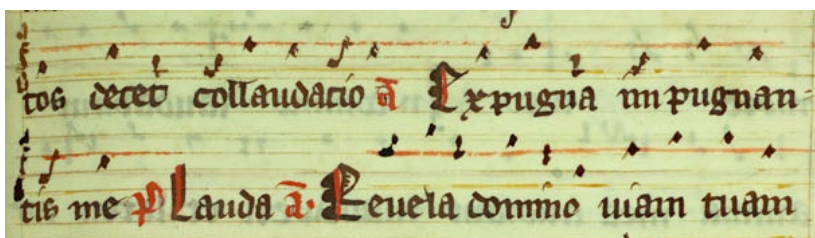 tos decet collaudatio ā Expugna impugnan-
tis me p̄ Lauda ā. Reuela domino uiam tuam